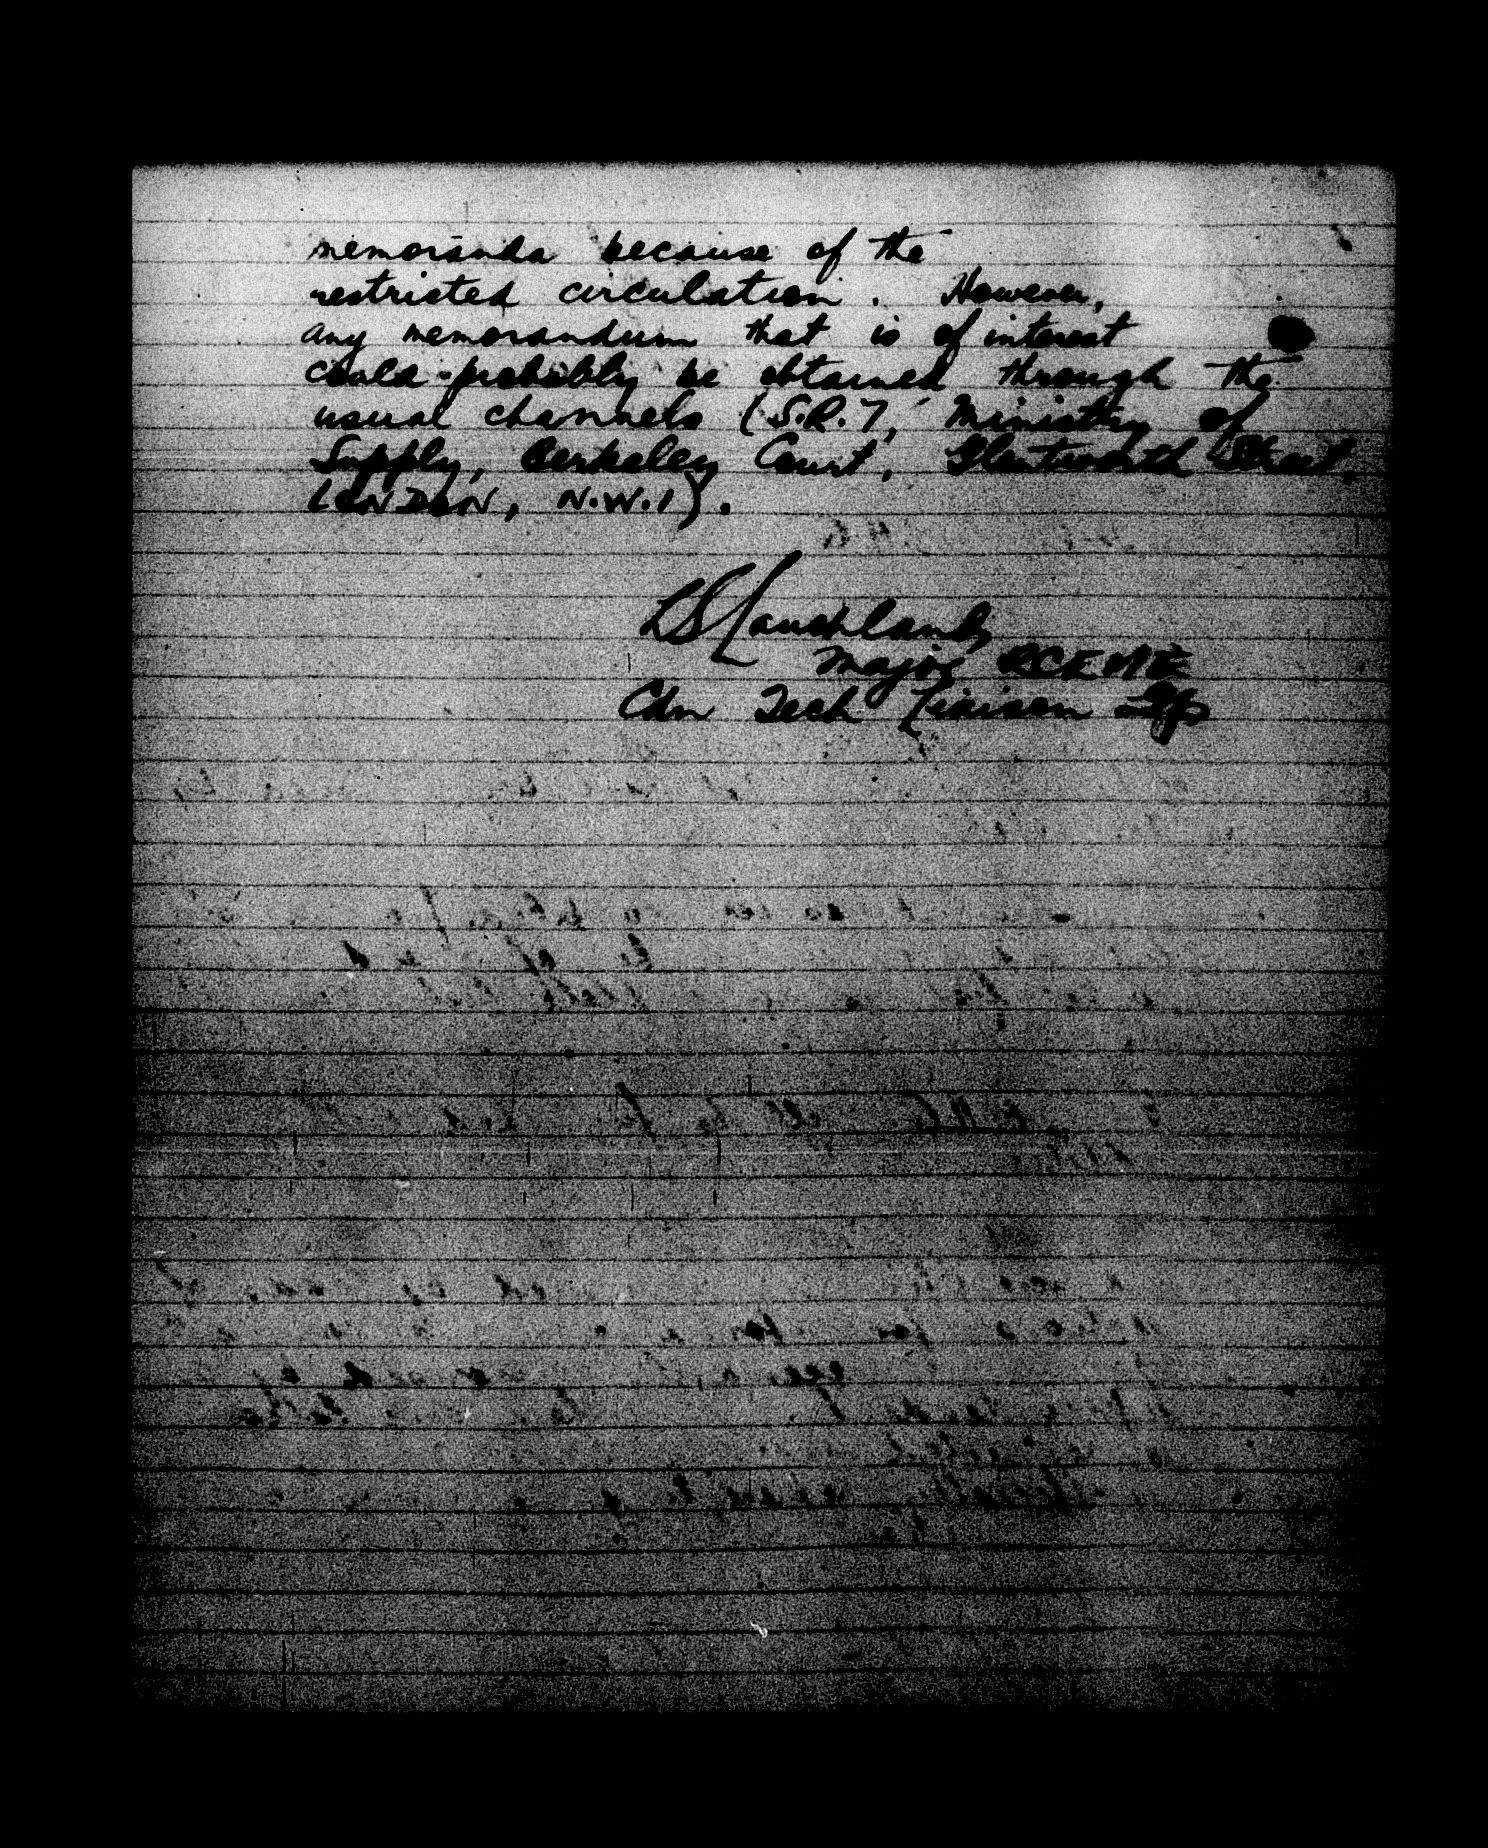 memoranda because of the
restricted circulation. However,
any memorandum that is of interest
could probably be obtained through the
usual channels (S.R.7, Ministry of
Supply, Berkeley Court, Glentworth Street
LONDON, N.W.1).
Major RCEME
Cdn Tech Liaison Gp